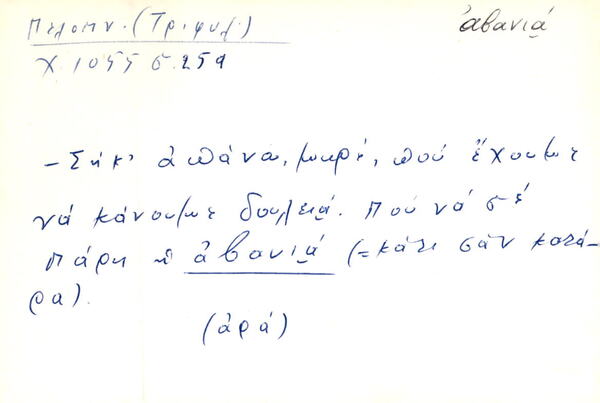 Πελοπν. (Τριφυλ.)
ἀβανιά
χ. 1055 σ. 259
– Σήκ' ἀπάνω, μωρή, πού ἔχουμε
νά κάνουμε δουλειά. Πού νά σέ
πάρη ἡ ἀβανιά (= κάτι σάν κατά-
ρα).
(ἀρά)